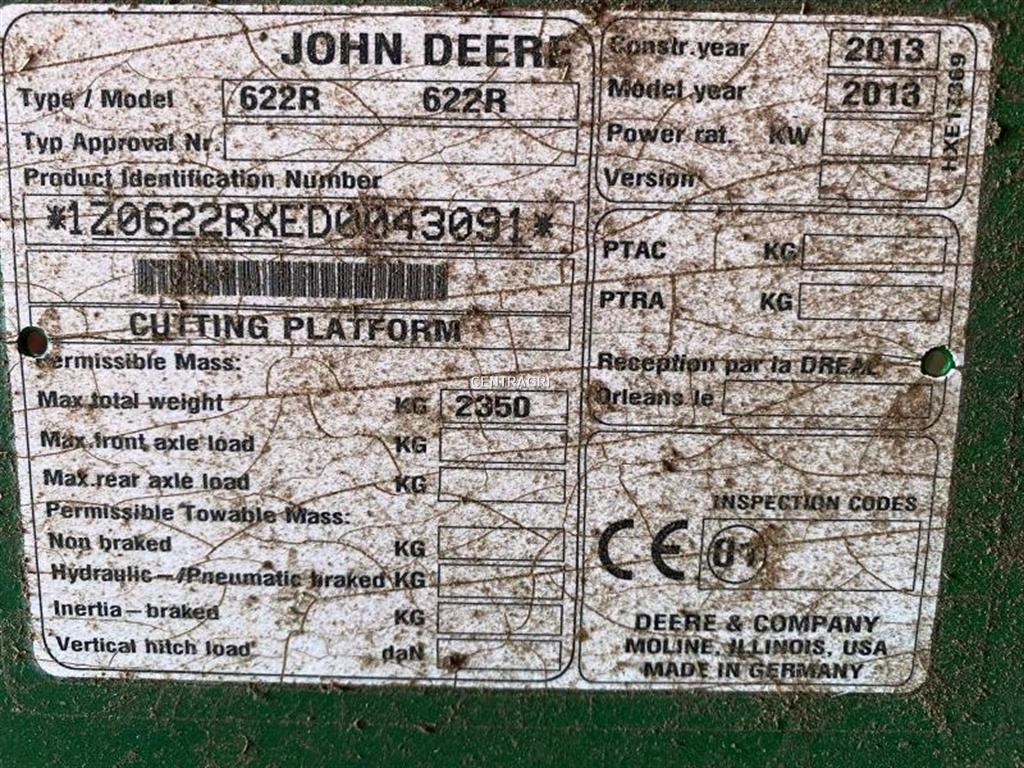 JOHN DEERE
Type / Model 622R 622R
Typ Approval Nr.
Product Identification Number
*1Z0622RXED0043091*
CUTTING PLATFORM
Permissible Mass:
Max total weight KG 2350
Max.front axle load KG
Max.rear axle load KG
Permissible Towable Mass:
Non braked KG
Hydraulic-/Pneumatic braked KG
Inertia-braked KG
Vertical hitch load daN
Constr.year 2013
Model year 2013
Power rat. KW
Version
HXE17369
PTAC KG
PTRA KG
Reception par la DREAL
Orleans le
INSPECTION CODES
CE 01
DEERE & COMPANY
MOLINE, ILLINOIS, USA
MADE IN GERMANY
CENTRAGRI